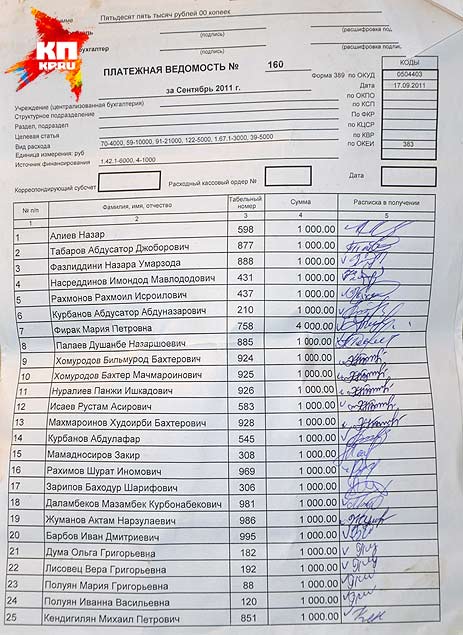 КП
KP.RU
Пятьдесят пять тысяч рублей 00 копеек
(подпись) (расшифровка подписи)
бухгалтер
(подпись) (расшифровка под
ПЛАТЕЖНАЯ ВЕДОМОСТЬ № 160
КОДЫ
Форма 389 по ОКУД 0504403
за Сентябрь 2011 г.
Дата 17.09.2011
Учреждение (централизованная бухгалтерия) по ОКПО
Структурное подразделение по КСП
Раздел, подраздел по ФКР
Целевая статья по КЦСР
Вид расхода 70-4000, 59-10000, 91-21000, 122-5000, 1.67.1-3000, 39-5000 по КВР
Единица измерения: руб по ОКЕИ 383
Источник финансирования 1.42.1-6000, 4-1000
Корреспондирующий субсчет Расходный кассовый ордер № Дата
№ п/п Фамилия, имя, отчество Табельный номер Сумма Расписка в получении
1 2 3 4 5
1 Алиев Назар 598 1 000.00
2 Табаров Абдусатор Джоборович 877 1 000.00
3 Фазлиддини Назара Умарзода 888 1 000.00
4 Насреддинов Имондод Мавлододович 431 1 000.00
5 Рахмонов Рахмоил Исроилович 437 1 000.00
6 Курбанов Абдусатор Абдуназарович 210 1 000.00
7 Фирак Мария Петровна 758 4 000.00
8 Палаев Душанбе Назаршоевич 885 1 000.00
9 Хомуродов Бильмурод Бахтерович 924 1 000.00
10 Хомуродов Бахтер Мачмароинович 925 1 000.00
11 Нуралиев Панжи Ишкадович 926 1 000.00
12 Исаев Рустам Асирович 583 1 000.00
13 Махмароинов Худоирби Бахтерович 928 1 000.00
14 Курбанов Абдулафар 545 1 000.00
15 Мамадносиров Закир 308 1 000.00
16 Рахимов Шурат Иномович 969 1 000.00
17 Зарипов Баходур Шарифович 306 1 000.00
18 Даламбеков Мазамбек Курбонабекович 981 1 000.00
19 Жуманов Актам Нарзулаевич 986 1 000.00
20 Барбов Иван Дмитриевич 995 1 000.00
21 Дума Ольга Григорьевна 182 1 000.00
22 Лисовец Вера Григорьевна 192 1 000.00
23 Полуян Мария Григорьевна 88 1 000.00
24 Полуян Иванна Васильевна 120 1 000.00
25 Кендигилян Михаил Петрович 851 1 000.00